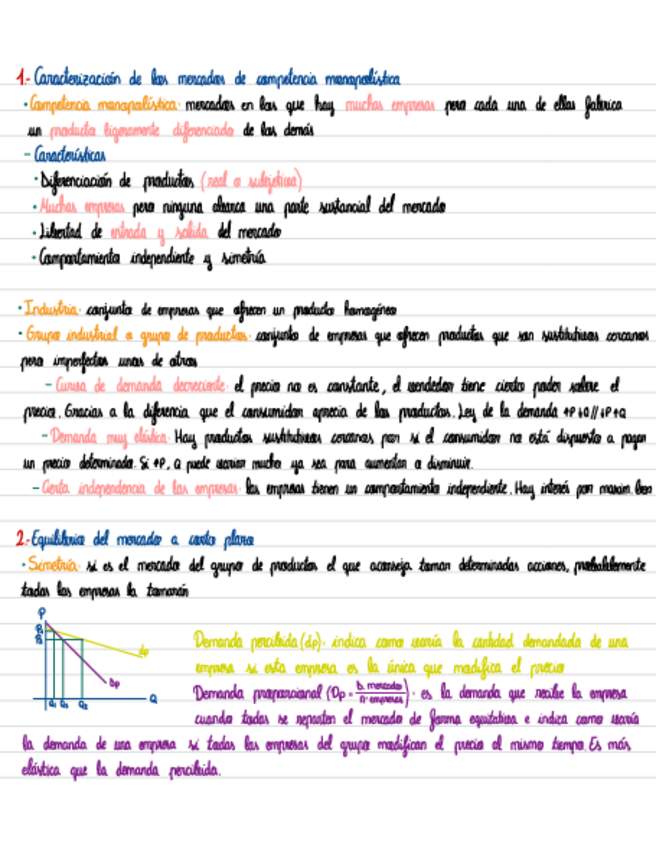 1.- Caracterización de los mercados de competencia monopolística
· Competencia monopolística: mercados en los que hay muchas empresas pero cada una de ellas fabrica
un producto ligeramente diferenciado de los demás
- Características
· Diferenciación de productos (real o subjetiva)
· Muchas empresas pero ninguna abarca una parte sustancial del mercado
· Libertad de entrada y salida del mercado
· Comportamiento independiente y simetría
· Industria: conjunto de empresas que ofrecen un producto homogéneo
· Grupo industrial o grupo de productos: conjunto de empresas que ofrecen productos que son sustitutivos cercanos
pero imperfectos unos de otros
- Curva de demanda decreciente: el precio no es constante, el vendedor tiene cierto poder sobre el
precio. Gracias a la diferencia que el consumidor aprecia de los productos. Ley de la demanda ↑P↓Q//↓P↑Q
- Demanda muy elástica: Hay productos sustitutivos cercanos por si el consumidor no está dispuesto a pagar
un precio determinado. Si ↑P, Q puede variar mucho ya sea para aumentar o disminuir.
- Cierta independencia de las empresas: las empresas tienen un comportamiento independiente. Hay interés por maxim. ben
2.- Equilibrio del mercado a corto plazo
· Simetría: si es el mercado del grupo de productos el que aconseja tomar determinadas acciones, probablemente
todas las empresas la tomarán
P
dp
Dp
Q
Demanda percibida (dp): indica como varía la cantidad demandada de una
empresa si esta empresa es la única que modifica el precio
Demanda proporcional (Dp = D. mercado / nº empresas): es la demanda que recibe la empresa
cuando todas se reparten el mercado de forma equitativa e indica como varía
la demanda de una empresa si todas las empresas del grupo modifican el precio al mismo tiempo. Es más
elástica que la demanda percibida.